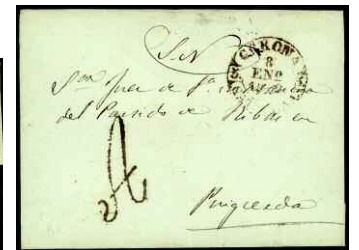 S. N.
GERONA
8
ENO
Sor Juez de 1ª
del Partido de Ribas en
Puigcerda
A